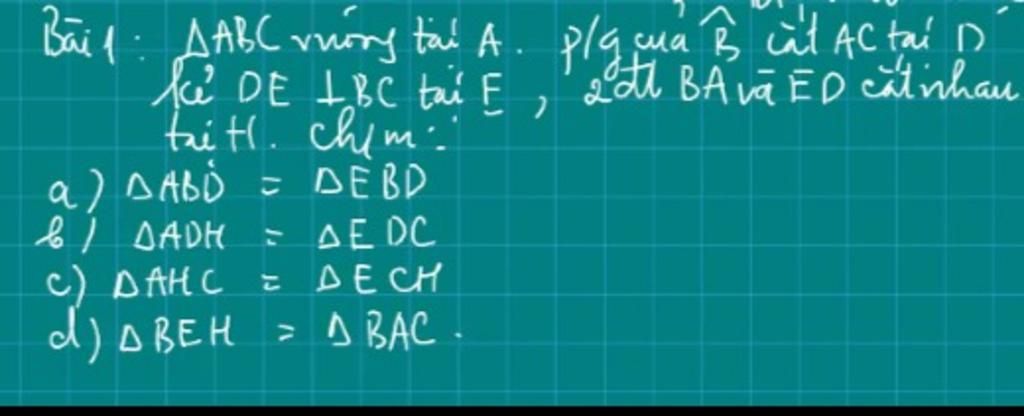 Bài 1: ΔABC vuông tại A. p/g của B̂ cắt AC tại D
kẻ DE ⊥ BC tại E, 2 đt BA và ED cắt nhau
tại H. Ch/m:
a) ΔABD = ΔEBD
b) ΔADH = ΔEDC
c) ΔAHC = ΔECH
d) ΔBEH = ΔBAC.